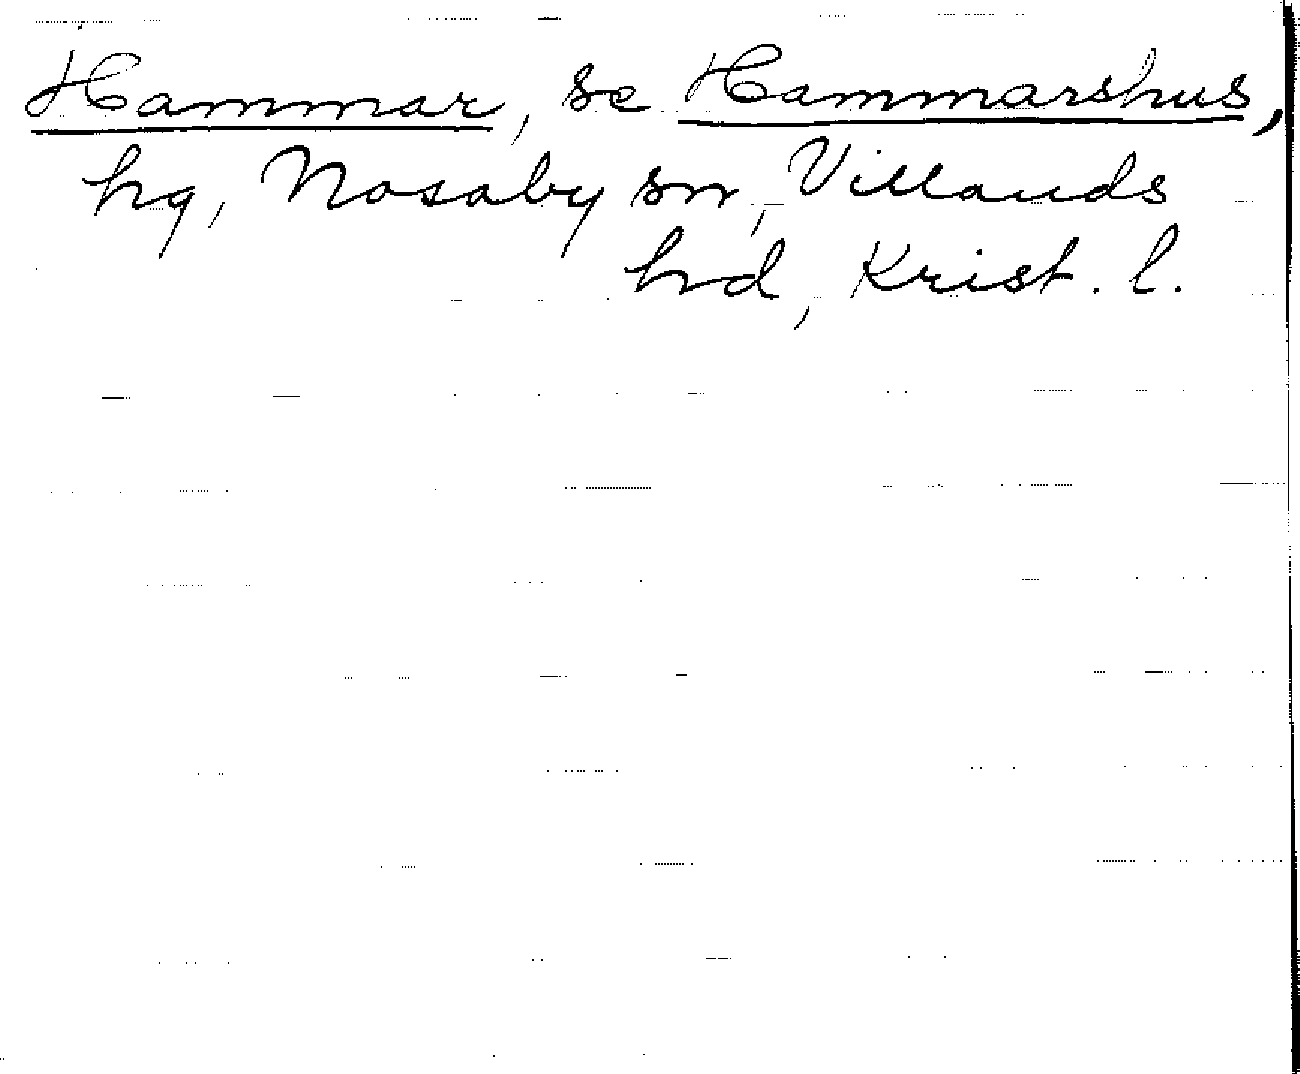 Hammar, se Hammarshus,
hg, Nosaby sn, Villands
hd, Krist. l.